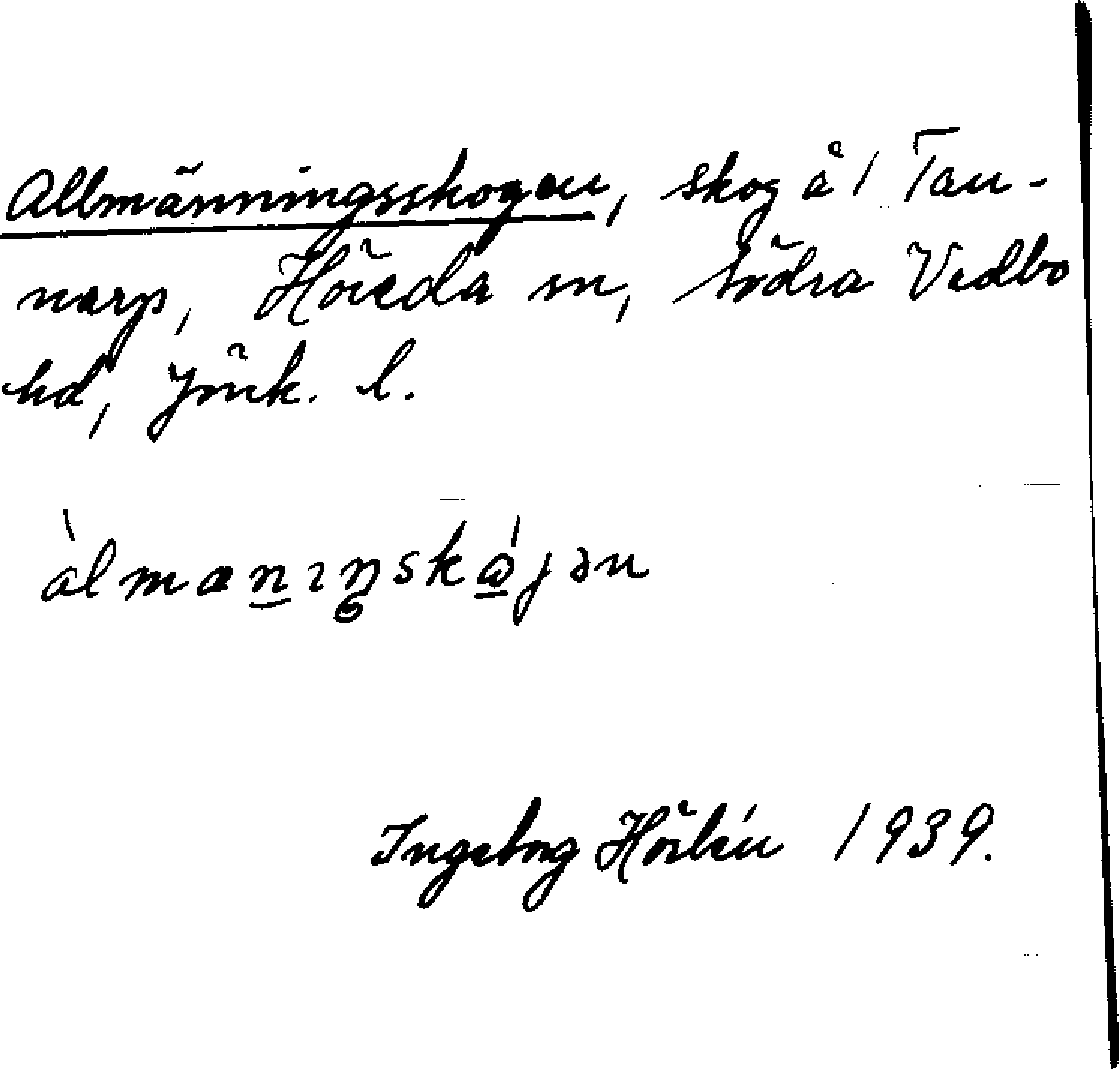 Allmänningsskogen, skog å 1 Tan-
narp, Höreda sn, Södra Vedbo
hd, Jönk. l.
àlmanıŋskɷ́jən
Ingeborg Hörlén 1939.